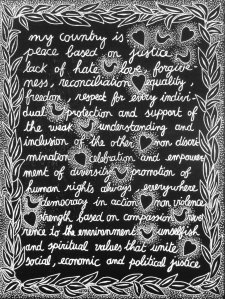 my country is
peace based on justice
lack of hate love forgive-
ness, reconciliation equality,
freedom, respect for every indivi-
dual protection and support of
the weak understanding and
inclusion of the other non discri
mination celebration and empower
ment of diversity promotion of
human rights always, everywhere
democracy in action non violence
strength based on compassion reve
rence to the environment unselfish
and spiritual values that unite
social, economic and political justice